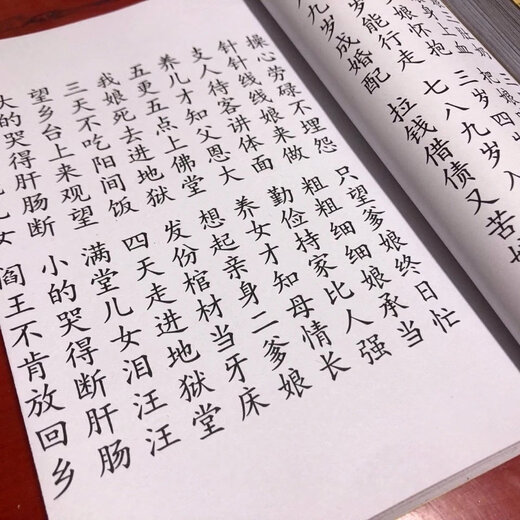 上血
娘怀抱 三岁四
岁能行走 七八九岁
八九岁成婚配 拉钱借债又苦
操心劳碌不埋怨 只望爹娘终日忙
针针线线娘来做 粗粗细细娘承当
支人待客讲体面 勤俭持家比人强
养儿才知父恩大 养女才知母情长
五更五点上佛堂 想起亲身二爹娘
我娘死去进地狱 发份棺材当牙床
三天不吃阳间饭 四天走进地狱堂
望乡台上来观望 满堂儿女泪汪汪
大的哭得肝肠断 小的哭得断肝肠
儿女 阎王不肯放回乡